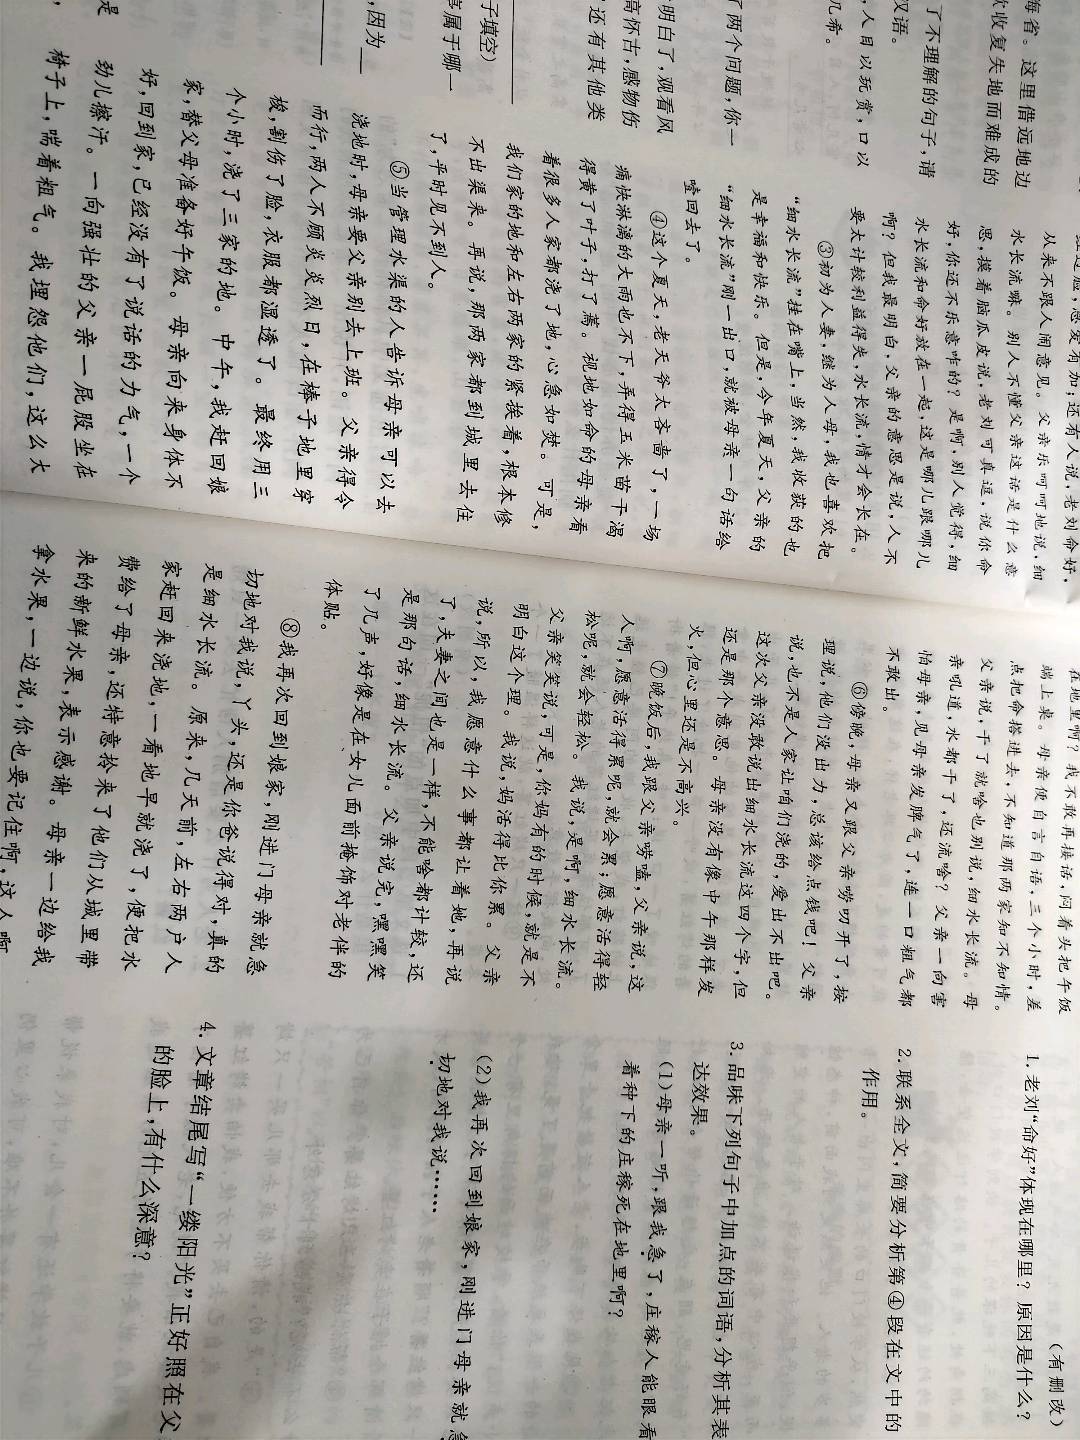 海省。这里借远地边
次收复失地而难成的
了不理解的句子,请
汉语。
人目以玩赏,口以
几希。
了两个问题,你一
明白了,观看风
高怀古,感物伤
还有其他类
子填空)
属于哪一
,因为
是
从来不跟人闹意见。父亲乐呵呵地说,细
水长流嘛。别人不懂父亲这话是什么意
思,摸着脑瓜皮说,老刘可真逗,说你命
好,你还不乐意咋的?是啊,别人觉得,细
水长流和命好放在一起,这是哪儿跟哪儿
啊?但我最明白,父亲的意思是说,人不
要太计较利益得失,水长流,情才会长在。
③初为人妻,继为人母,我也喜欢把
“细水长流”挂在嘴上,当然,我收获的也
是幸福和快乐。但是,今年夏天,父亲的
“细水长流”刚一出口,就被母亲一句话给
噎回去了。
④这个夏天,老天爷太吝啬了,一场
痛快淋漓的大雨也不下,弄得玉米苗干渴
得黄了叶子,打了蔫。视地如命的母亲看
着很多人家都浇了地,心急如焚。可是,
我们家的地和左右两家的紧挨着,根本修
不出渠来。再说,那两家都到城里去住
了,平时见不到人。
⑤当管理水渠的人告诉母亲可以去
浇地时,母亲要父亲别去上班。父亲得令
而行,两人不顾炎炎烈日,在棒子地里穿
梭,割伤了脸,衣服都湿透了。最终用三
个小时,浇了三家的地。中午,我赶回娘
家,替父母准备好午饭。母亲向来身体不
好,回到家,已经没有了说话的力气,一个
劲儿擦汗。一向强壮的父亲一屁股坐在
椅子上,喘着粗气。我埋怨他们,这么大
在地里啊?我不敢再接话,闷着头把午饭
端上桌。母亲便自言自语,三个小时,差
点把命搭进去,不知道那两家知不知情。
父亲说,干了就啥也别说,细水长流。母
亲吼道,水都干了,还流啥?父亲一向害
怕母亲,见母亲发脾气了,连一口粗气都
不敢出。
⑥傍晚,母亲又跟父亲唠叨开了,按
理说,他们没出力,总该给点钱吧!父亲
说,也不是人家让咱们浇的,爱出不出吧。
这次父亲没敢说出细水长流这四个字,但
还是那个意思。母亲没有像中午那样发
火,但心里还是不高兴。
⑦晚饭后,我跟父亲唠嗑,父亲说,这
人啊,愿意活得累呢,就会累;愿意活得轻
松呢,就会轻松。我说,是啊,细水长流。
父亲笑笑说,可是,你妈有的时候,就是不
明白这个理。我说,妈活得比你累。父亲
说,所以,我愿意什么事都让着她,再说
了,夫妻之间也是一样,不能啥都计较,还
是那句话,细水长流。父亲说完,嘿嘿笑
了几声,好像是在女儿面前掩饰对老伴的
体贴。
⑧我再次回到娘家,刚进门母亲就急
切地对我说,丫头,还是你爸说得对,真的
是细水长流。原来,几天前,左右两户人
家赶回来浇地,一看地早就浇了,便把水
费给了母亲,还特意拎来了他们从城里带
来的新鲜水果,表示感谢。母亲一边给我
拿水果,一边说,你也要记住啊,这人啊
(有删改)
1. 老刘“命好”体现在哪里?原因是什么?
2. 联系全文,简要分析第④段在文中的
作用。
3. 品味下列句子中加点的词语,分析其表
达效果。
(1)母亲一听,跟我急了,庄稼人能眼看
着种下的庄稼死在地里啊?
(2)我再次回到娘家,刚进门母亲就急
切地对我说……
4. 文章结尾写“一缕阳光”正好照在父
的脸上,有什么深意?